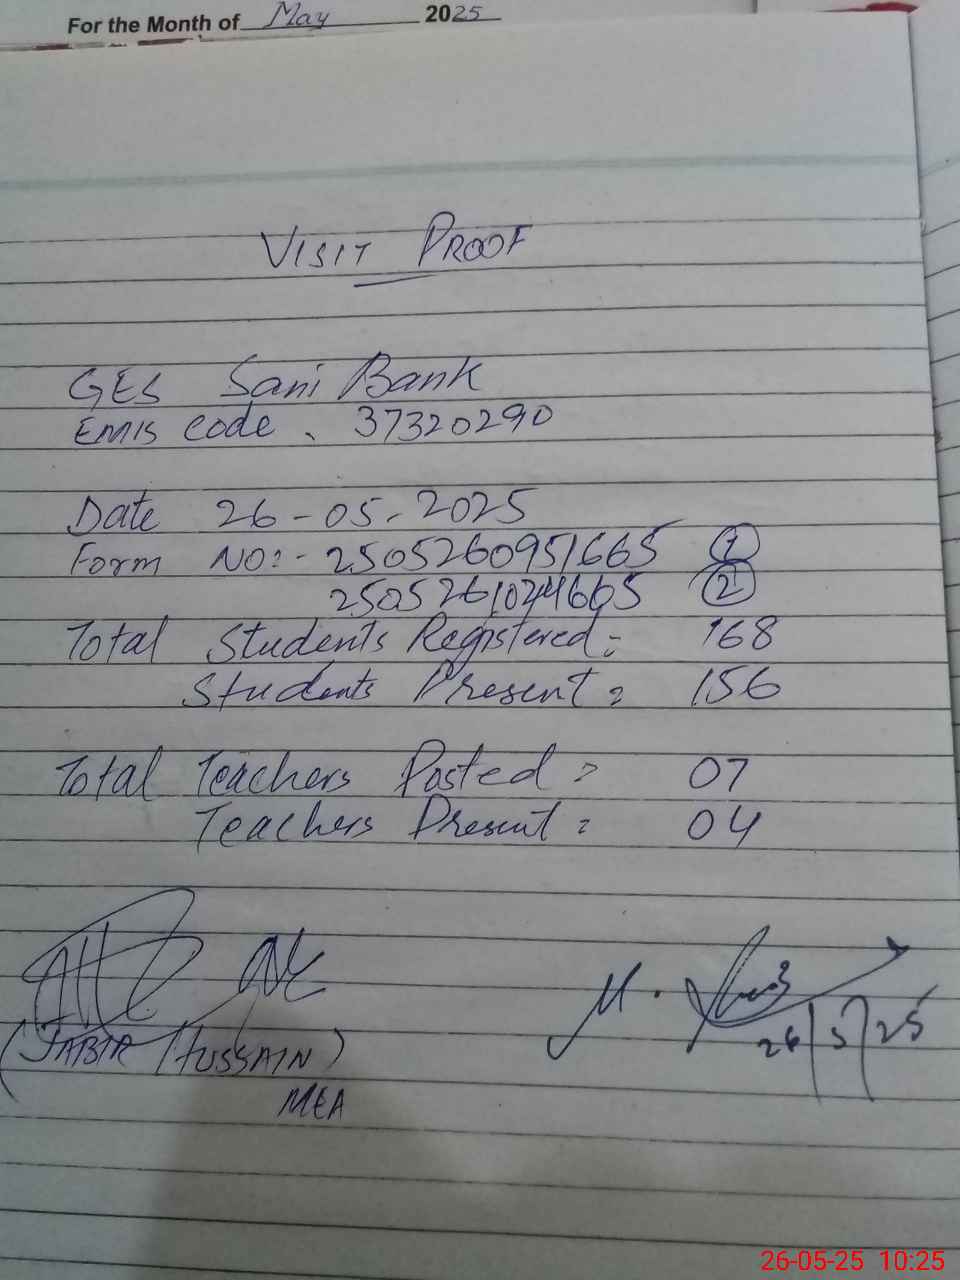 For the Month of May 2025
VISIT PROOF
GES Sani Bank
EMIS code . 37320290
Date 26-05-2025
Form NO:- 2505260951665 1
2505261024665 2
Total Students Registered: 168
Students Present: 156
Total Teachers Posted: 07
Teachers Present: 04
(JABIR HUSSAIN)
MEA
M.
26/5/25
26-05-25 10:25